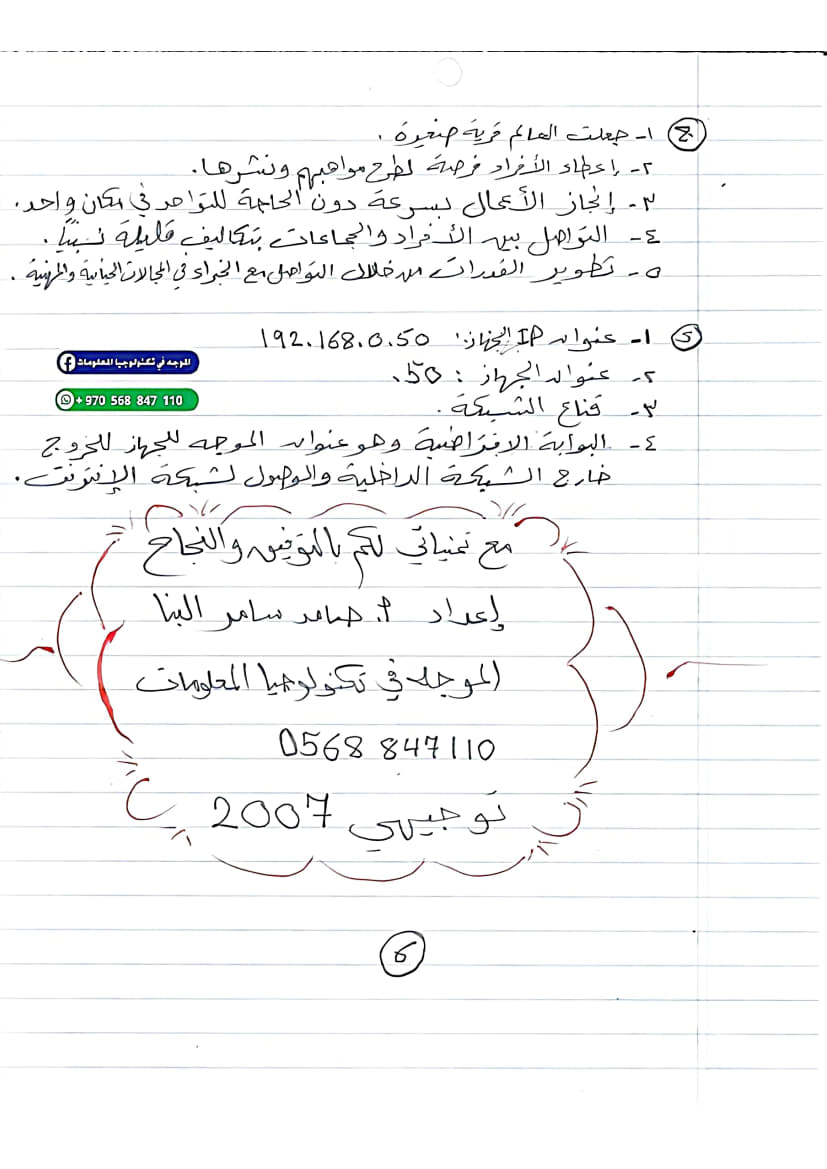 ج ١- جعلت العالم قرية صغيرة .
٢- إعطاء الأفراد فرصة لطرح مواهبهم ونشرها .
٣- إنجاز الأعمال بسرعة دون الحاجة للتواجد في مكان واحد .
٤- التواصل بين الأفراد والجماعات بتكاليف قليلة نسبياً .
٥- تطوير القدرات من خلال التواصل مع الخبراء في المجالات الحياتية والمهنية .
د ١- عنوان IP الجهاز: 192.168.0.50
الموجه في تكنولوجيا المعلومات
٢- عنوان الجهاز : 50.
+970 568 847 110
٣- قناع الشبكة .
٤- البوابة الافتراضية وهو عنوان الموجه للجهاز للخروج
خارج الشبكة الداخلية والوصول لشبكة الإنترنت .
مع تمنياتي لكم بالتوفيق والنجاح
إعداد أ. سامر البنا
الموجه في تكنولوجيا المعلومات
0568 847110
توجيهي 2007
6